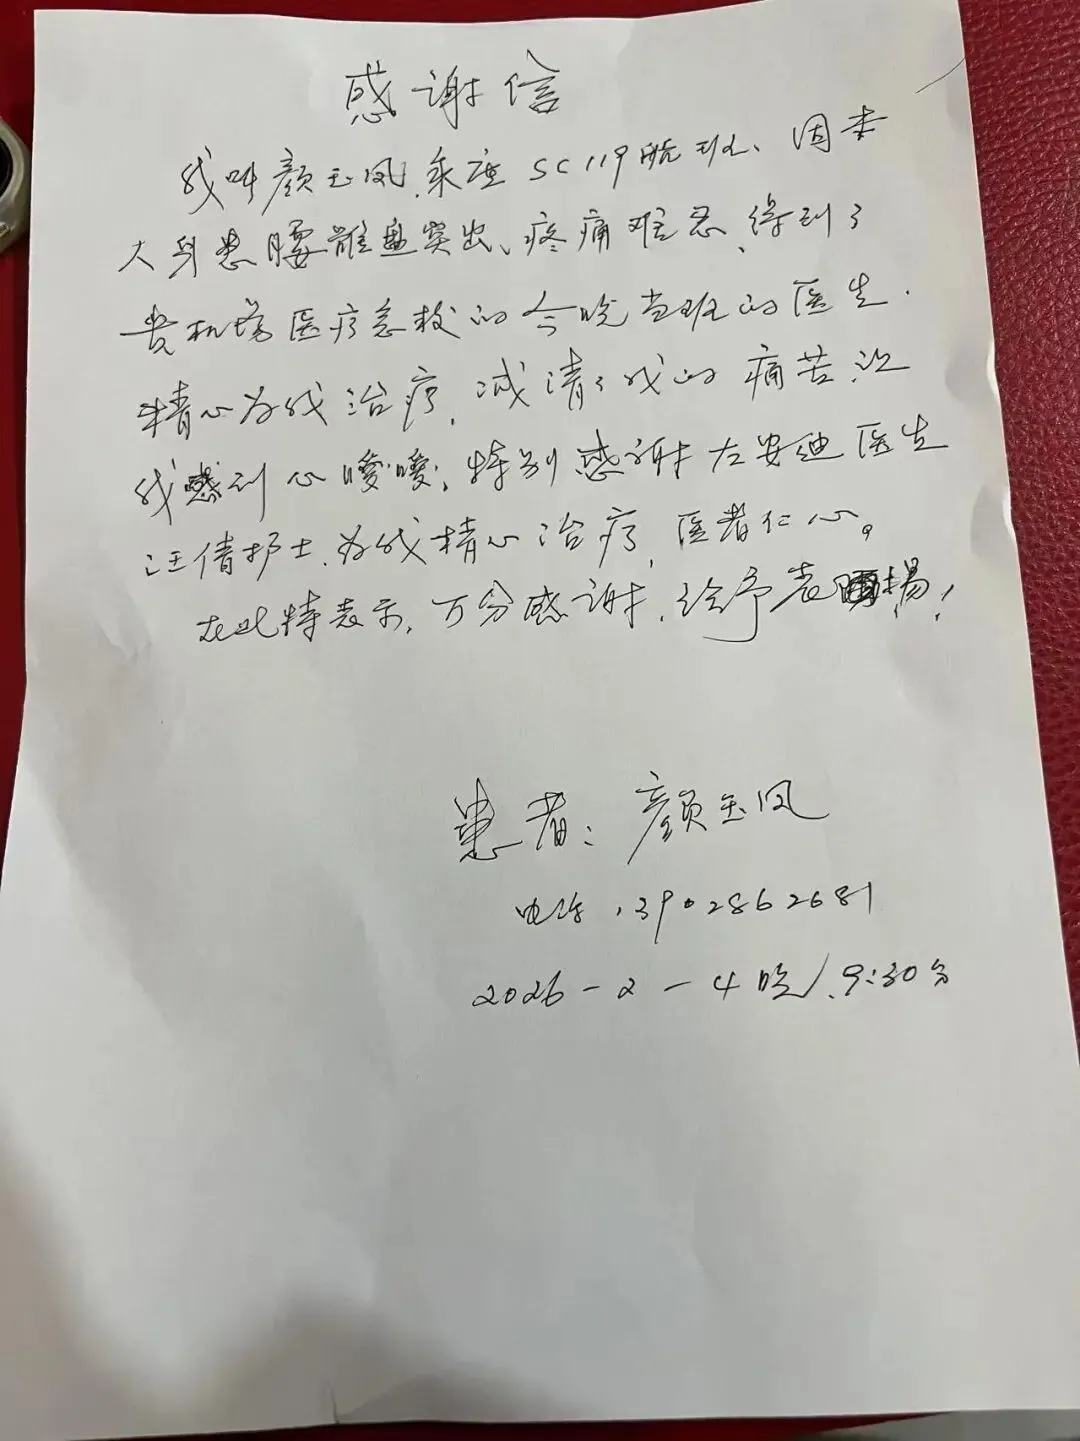 感谢信
我叫颜玉凤,乘座SC119航班、因本
人身患腰骶盘突出、疼痛难忍,得到了
贵机场医疗急救的今晚当班的医生.
精心为我治疗,减清了我的痛苦,让
我感到心暖暖;特别感谢左安迪医生
汪倩护士,为我精心治疗,医者仁心。
在此特表示,万分感谢,给予表扬!
患者:颜玉凤
电话,13902862681
2026-2-4晚,9:30分